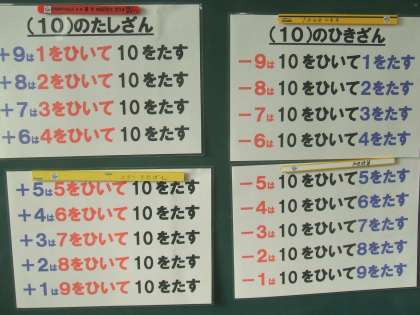 (10)のたしざん
+9は1をひいて10をたす
+8は2をひいて10をたす
+7は3をひいて10をたす
+6は4をひいて10をたす
+5は5をひいて10をたす
+4は6をひいて10をたす
+3は7をひいて10をたす
+2は8をひいて10をたす
+1は9をひいて10をたす
(10)のひきざん
-9は10をひいて1をたす
-8は10をひいて2をたす
-7は10をひいて3をたす
-6は10をひいて4をたす
-5は10をひいて5をたす
-4は10をひいて6をたす
-3は10をひいて7をたす
-2は10をひいて8をたす
-1は10をひいて9をたす